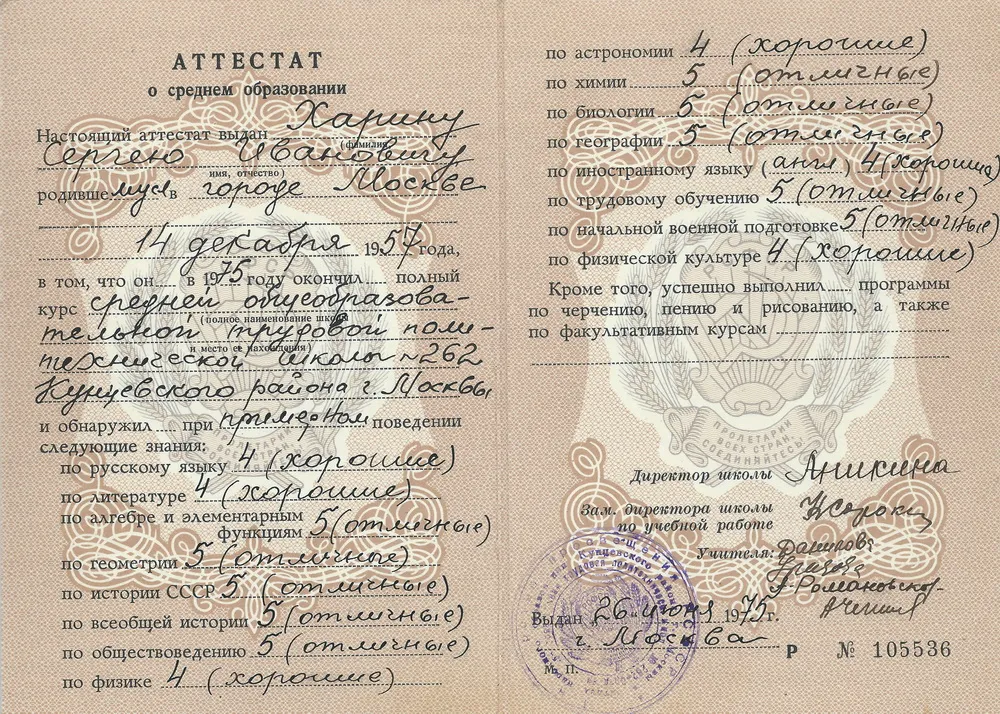 АТТЕСТАТ
о среднем образовании
Настоящий аттестат выдан Харину
(фамилия,
Сергею Ивановичу
имя, отчество)
родившемуся в городе Москве
14 декабря 1957 года,
в том, что он в 1975 году окончил полный
курс средней общеобразова-
(полное наименование школы
тельной трудовой поли-
и место ее нахождения)
технической школы № 262
Кунцевского района г. Москвы
и обнаружил при примерном поведении
следующие знания:
по русскому языку 4 (хорошие)
по литературе 4 (хорошие)
по алгебре и элементарным
функциям 5 (отличные)
по геометрии 5 (отличные)
по истории СССР 5 (отличные)
по всеобщей истории 5 (отличные)
по обществоведению 5 (отличные)
по физике 4 (хорошие)
по астрономии 4 (хорошие)
по химии 5 (отличные)
по биологии 5 (отличные)
по географии 5 (отличные)
по иностранному языку (англ) 4 (хорошие)
по трудовому обучению 5 (отличные)
по начальной военной подготовке 5 (отличные)
по физической культуре 4 (хорошие)
Кроме того, успешно выполнил программы
по черчению, пению и рисованию, а также
по факультативным курсам
ПРОЛЕТАРИИ
ВСЕХ СТРАН,
СОЕДИНЯЙТЕСЬ
Директор школы Аникина
Зам. директора школы
по учебной работе
Учителя: Данилова
Романовская
Выдан 26 июня 1975 г.
г. Москва
М. П.
Р № 105536